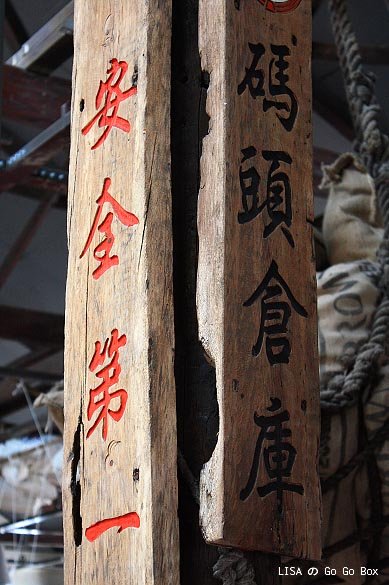 碼頭倉庫
安全第一
LISA の Go Go Box